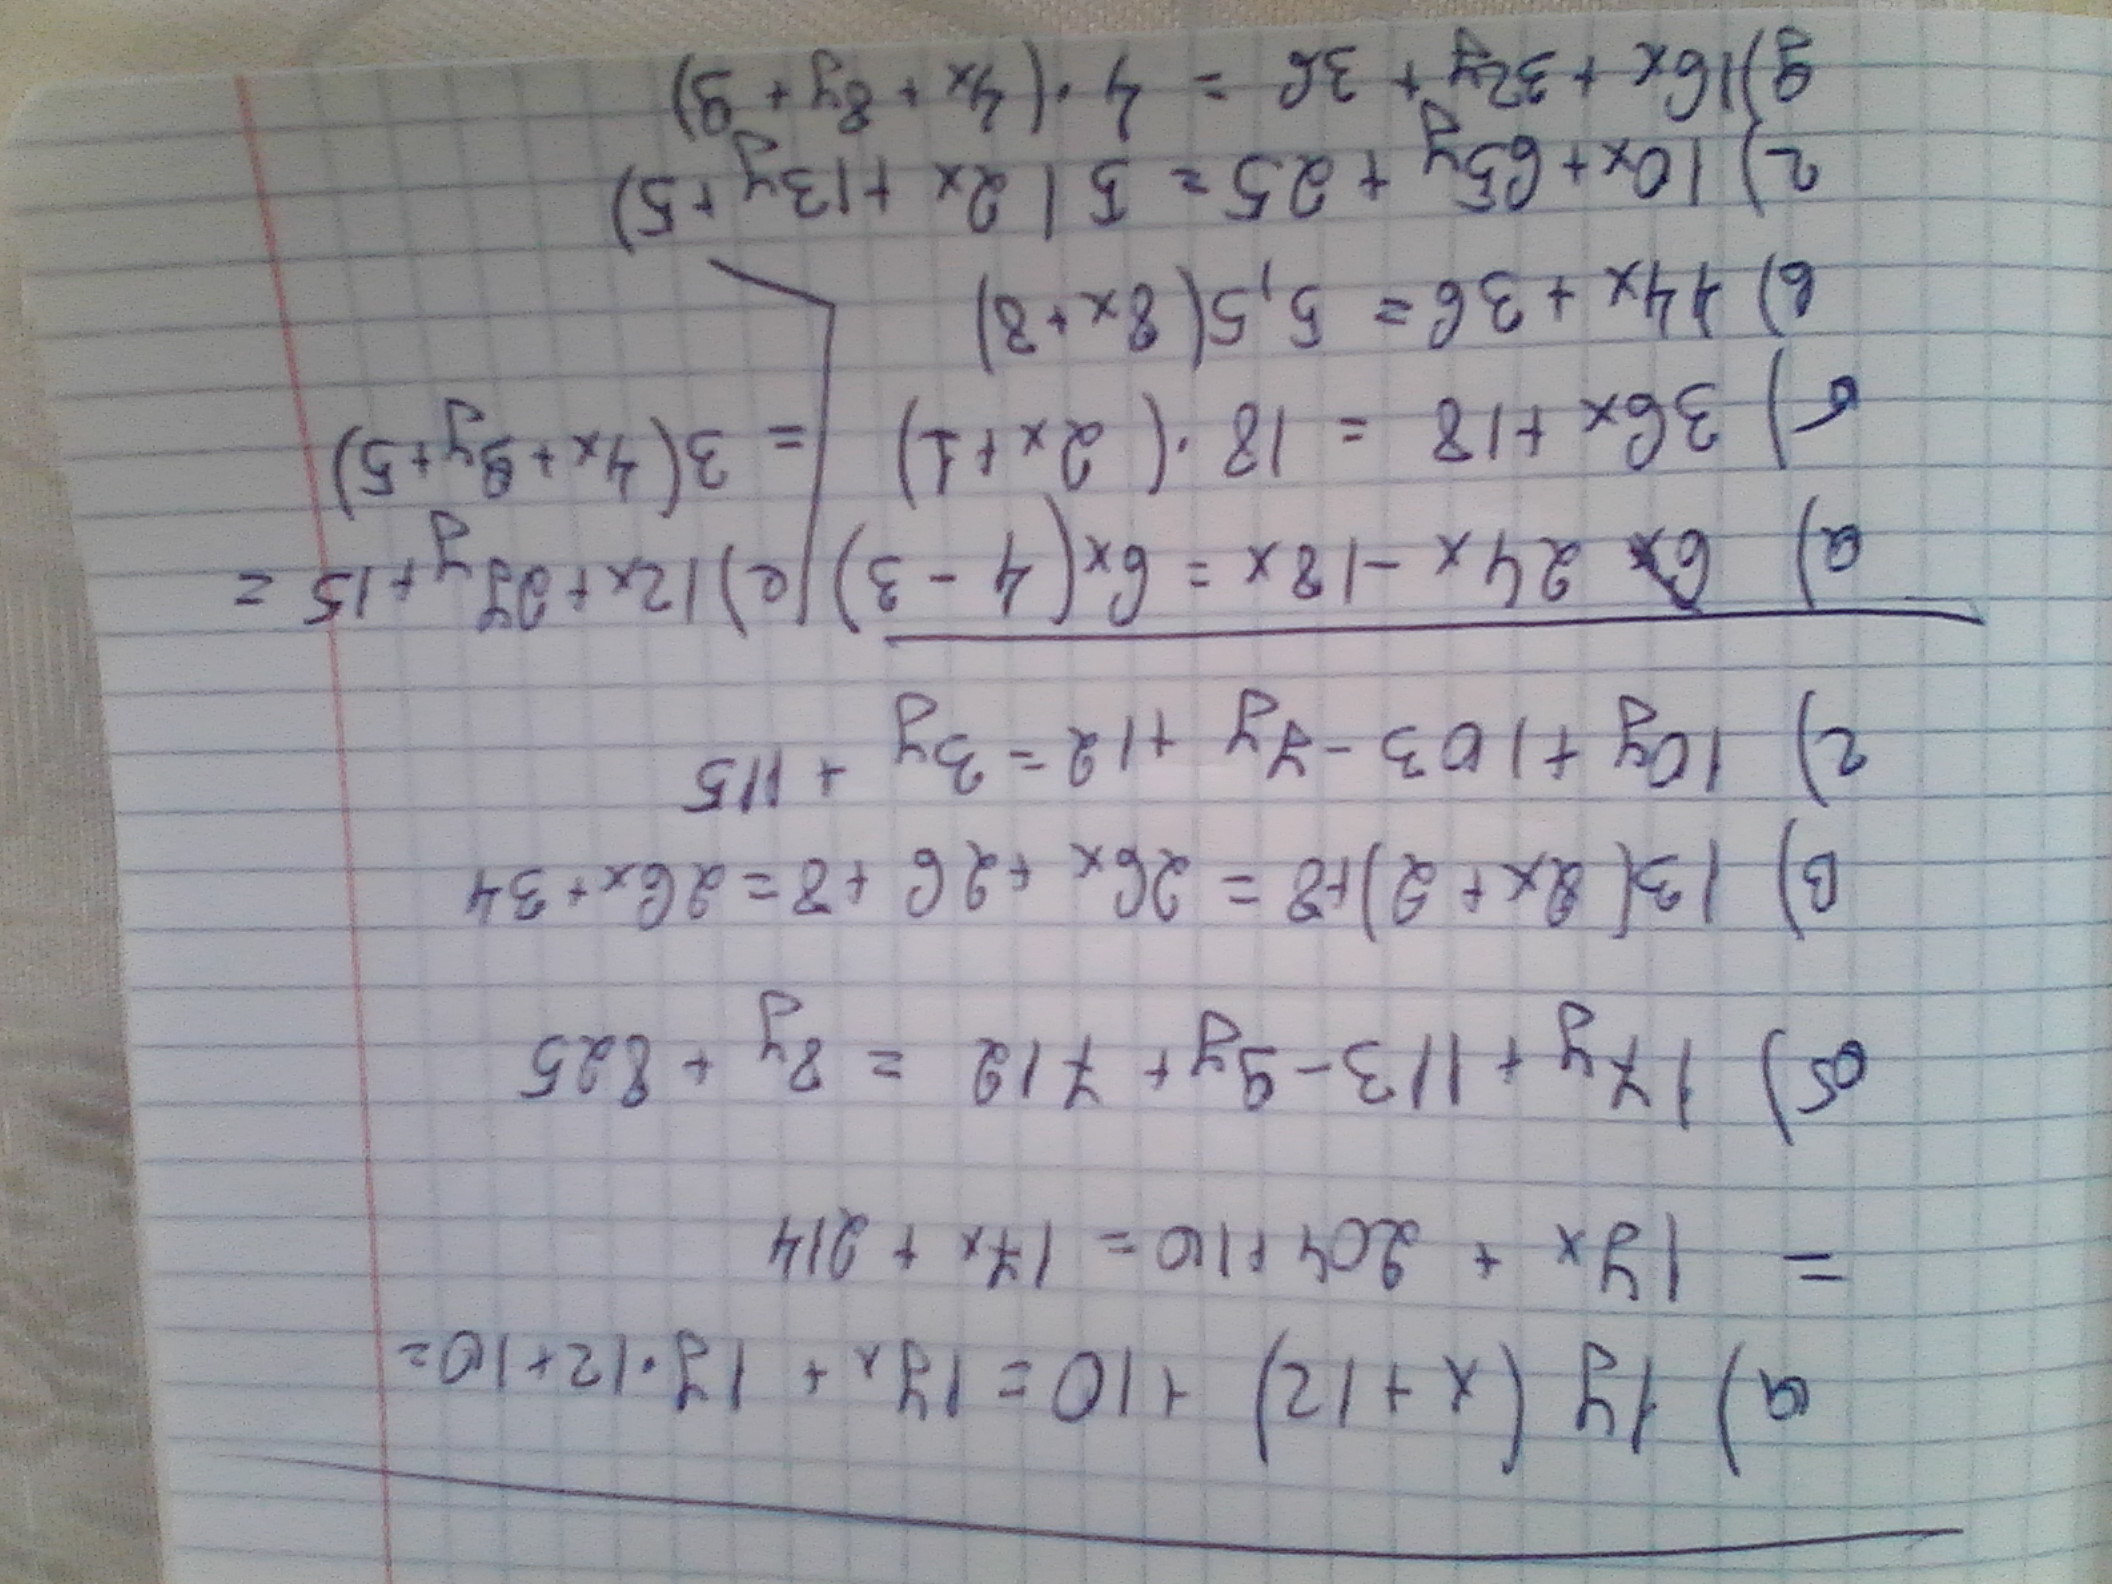 а) 17 (x+12) +10 = 17x + 17·12+10=
= 17x + 204+10 = 17x + 214
б) 17y + 113-9y+ 712 = 8y + 825
в) 13(2x+2)+8 = 26x +26 +8=26x+34
г) 10y +103-7y +12=3y + 115
а) 24x -18x = 6x(4-3)
б) 36x +18 = 18·(2x+1)
в) 44x +36 = 5,5(8x+8)
г) 10x+65y +25= 5(2x+13y+5)
g) 16x +32y+ 36 = 4·(4x+8y+9)
е) 12x+27y+15 =
= 3(4x+9y+5)